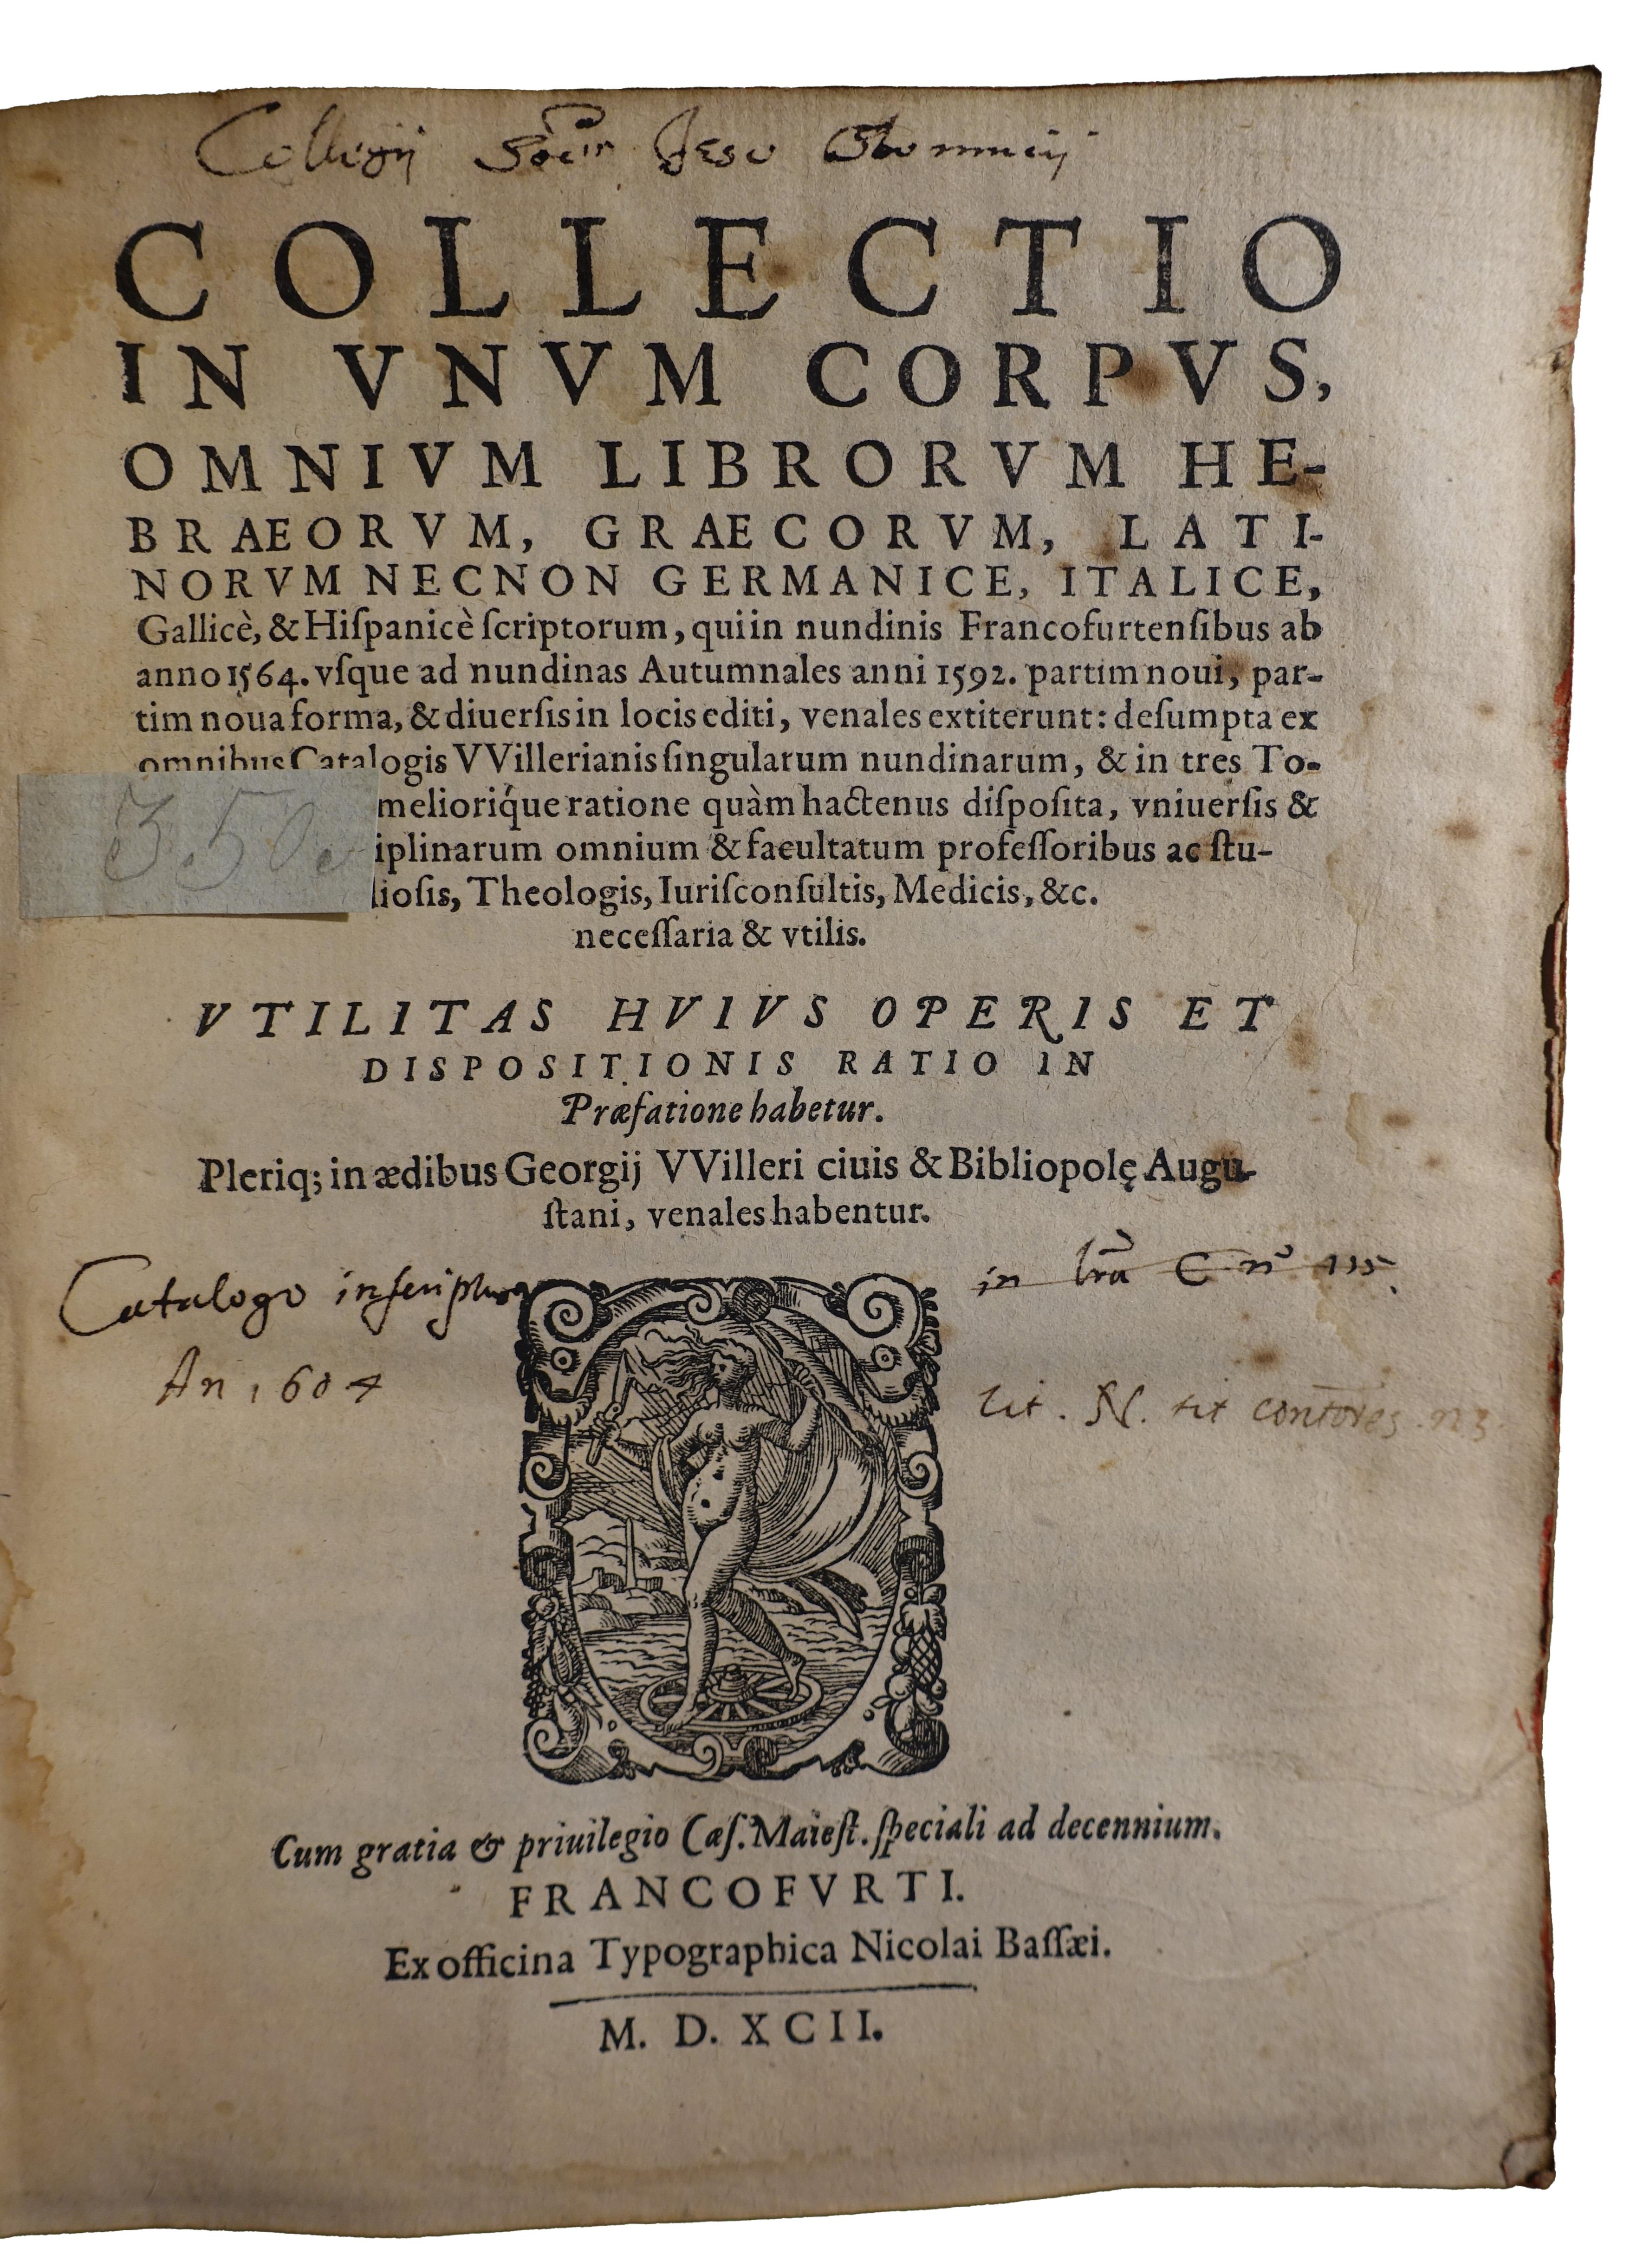 Collegij Socis Jesu Olomucij
COLLECTIO
IN VNVM CORPVS,
OMNIVM LIBRORVM HE-
BRAEORVM, GRAECORVM, LATI-
NORVM NECNON GERMANICE, ITALICE,
Gallicè, & Hiſpanicè ſcriptorum, qui in nundinis Francofurtenſibus ab
anno 1564. vſque ad nundinas Autumnales anni 1592. partim noui, par-
tim noua forma, & diuerſis in locis editi, venales extiterunt: deſumpta ex
omnibus Catalogis VVillerianis ſingularum nundinarum, & in tres To-
melioriq́ue ratione quàm hactenus diſpoſita, vniuerſis &
3.50
iplinarum omnium & facultatum profeſſoribus ac ſtu-
lioſis, Theologis, Iuriſconſultis, Medicis, &c.
neceſſaria & vtilis.
VTILITAS HVIVS OPERIS ET
DISPOSITIONIS RATIO IN
Præfatione habetur.
Pleriq; in ædibus Georgij VVilleri ciuis & Bibliopolę Augu-
ſtani, venales habentur.
Catalogo inscriptus
in lrā C n° 115.
An 1604
Lit. N.
Cum gratia & priuilegio Cæſ. Maieſt. ſpeciali ad decennium.
FRANCOFVRTI.
Ex officina Typographica Nicolai Baſſæi.
M. D. XCII.